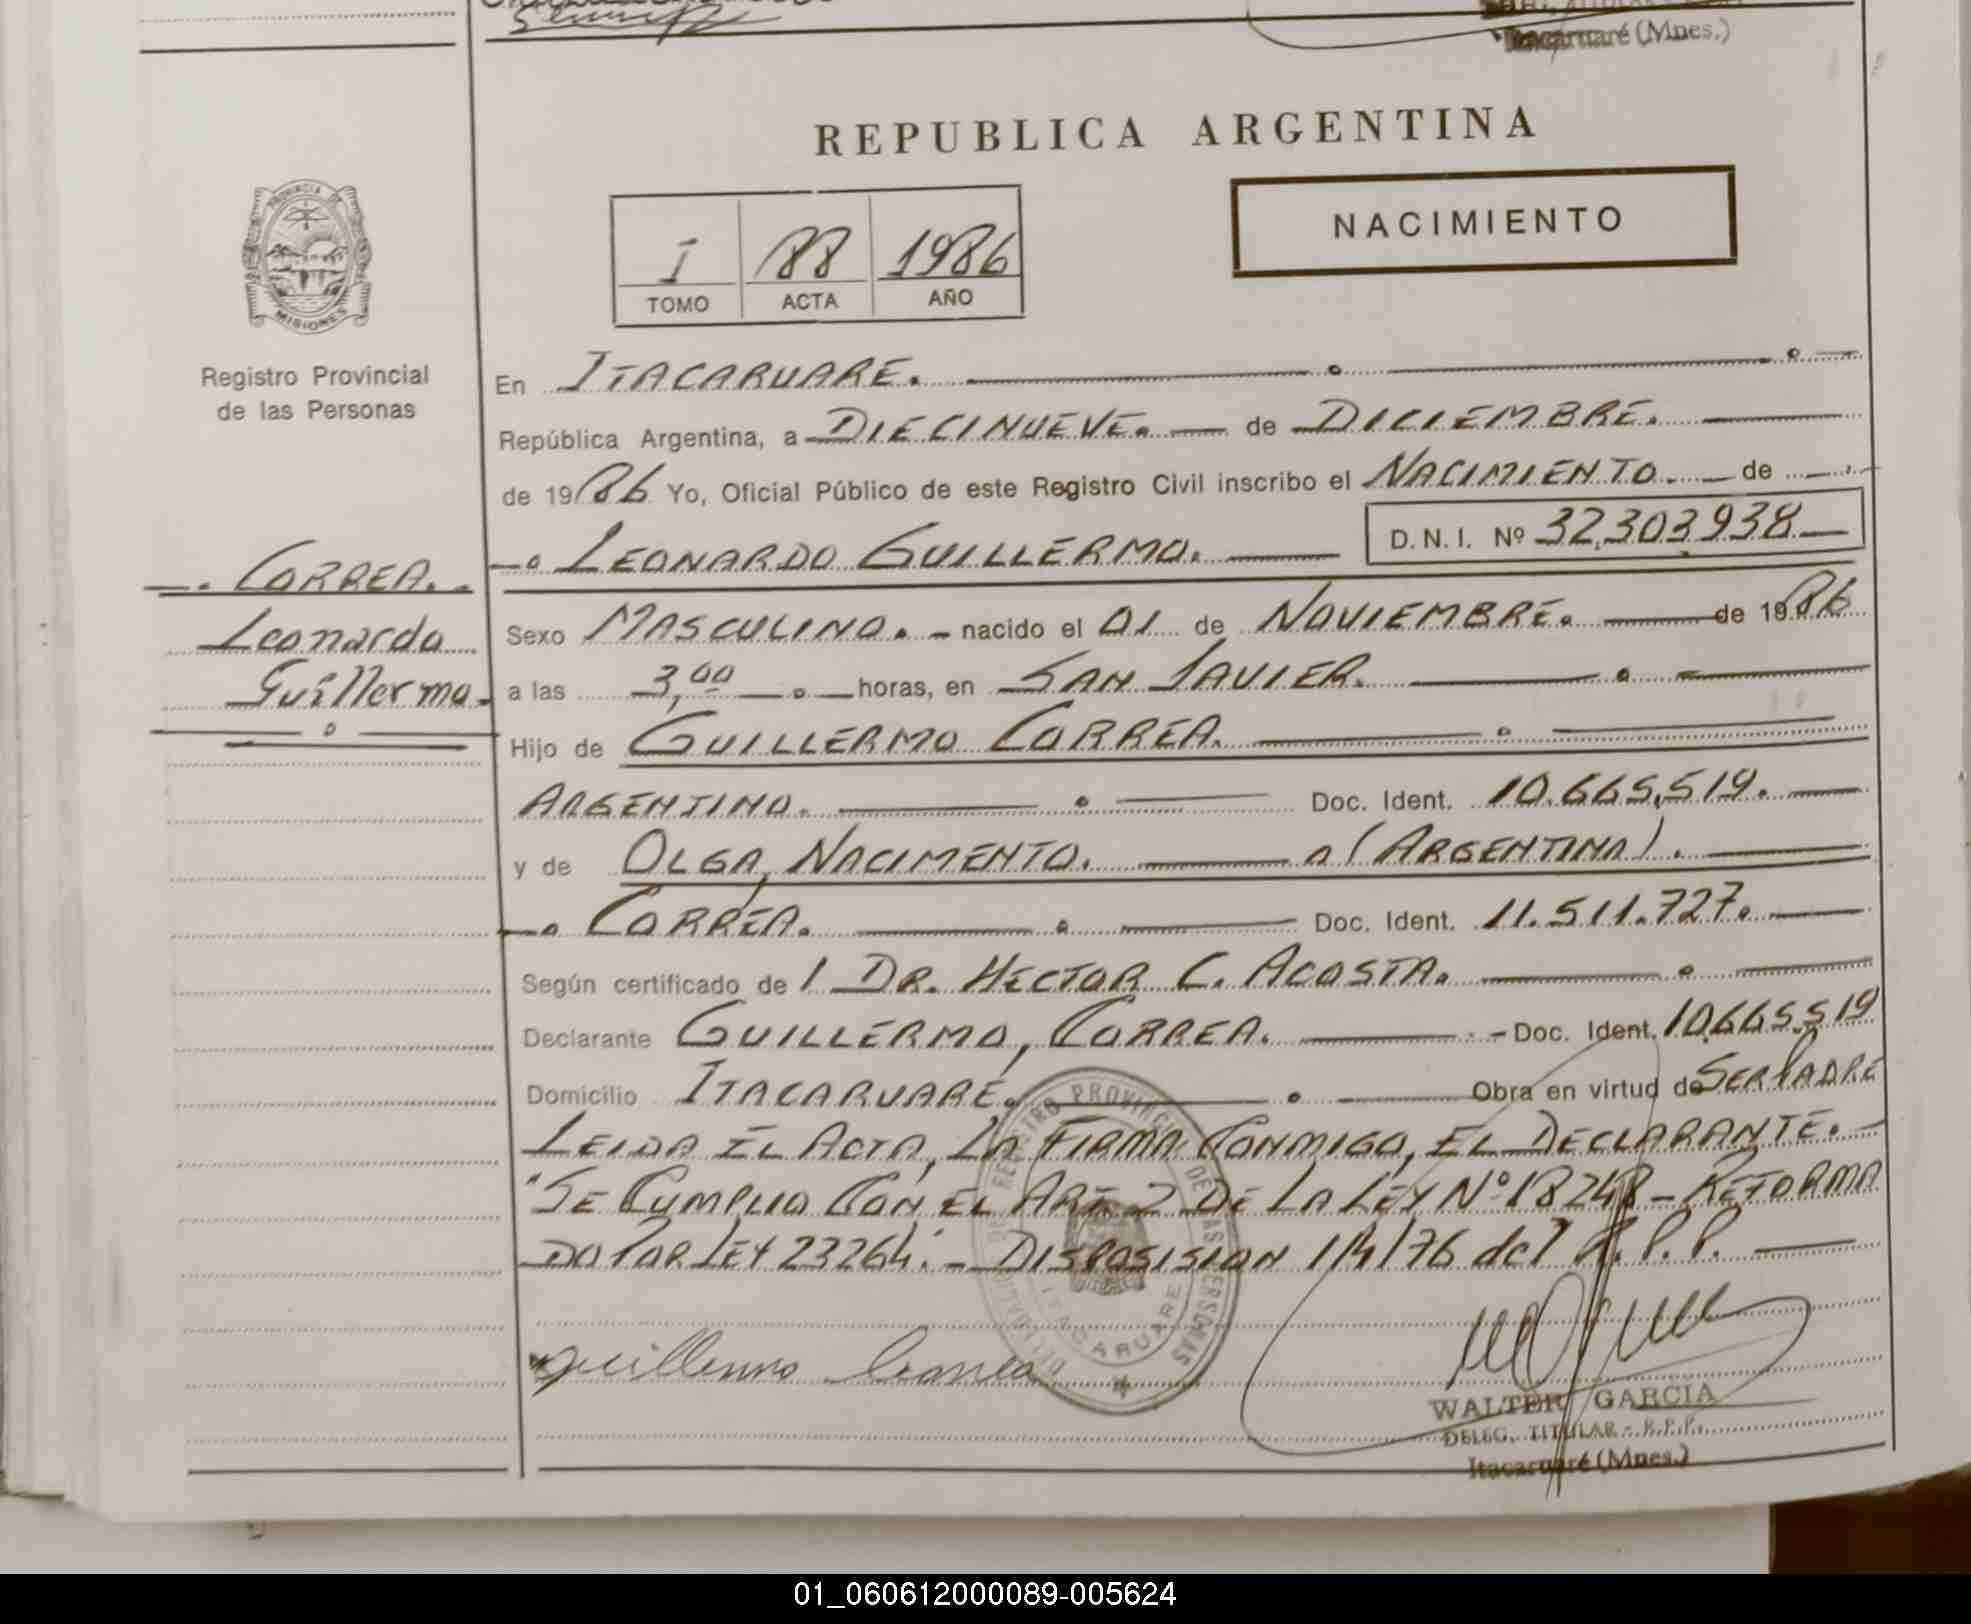 Itacaruaré (Mnes.)
REPUBLICA ARGENTINA
NACIMIENTO
I 88 1986
TOMO ACTA AÑO
PROVINCIA DE
MISIONES
Registro Provincial
de las Personas
CORREA.
Leonardo
Guillermo.
En ITACARUARE.
República Argentina, a DIECINUEVE. de DICIEMBRE.
de 1986 Yo, Oficial Público de este Registro Civil inscribo el NACIMIENTO. de
LEONARDO GUILLERMO. D.N.I. Nº 32.303.938
Sexo MASCULINO. nacido el 01 de NOVIEMBRE. de 1986
a las 3,00 horas, en SAN JAVIER.
Hijo de GUILLERMO CORREA.
ARGENTINO. Doc. Ident. 10.665.519.
y de OLGA, NACIMENTO. (ARGENTINA).
CORREA. Doc. Ident. 11.511.727.
Según certificado de l DR. HECTOR C. ACOSTA.
Declarante GUILLERMO, CORREA. Doc. Ident. 10.665.519
Domicilio ITACARUARE. Obra en virtud de SER PADRE
LEIDA EL ACTA, LA FIRMA CONMIGO, EL DECLARANTE.
"SE CUMPLIO CON EL ART 2 DE LA LEY Nº 18248 - REFORMA
DO POR LEY 23264". - DISPOSISION 1/4/76 del R.P.P.
Guillermo Correa
REGISTRO PROVINCIAL DE LAS PERSONAS
ITACARUARE
WALTER GARCIA
DELEG. TITULAR - R.P.P.
Itacaruaré (Mnes.)
01_060612000089-005624